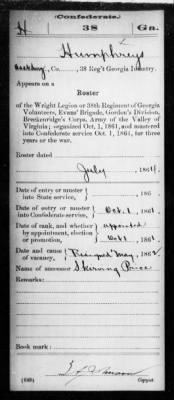 (Confederate.)
H 38 Ga.
Humphreys
Co. , 38 Reg't Georgia Infantry.
Appears on a
Roster
of the Wright Legion or 38th Regiment of Georgia
Volunteers, Evans' Brigade, Gordon's Division,
Breckenridge's Corps, Army of the Valley of
Virginia; organized Oct. 1, 1861, and mustered
into Confederate service Oct. 1, 1861, for three
years or the war.
Roster dated
July , 1864.
Date of entry or muster
into State service, , 186 .
Date of entry or muster
into Confederate service, Oct. 1 , 1861.
Date of rank, and whether
by appointment, election
or promotion, appointed
Oct 1 , 1861
Date and cause of
vacancy, Resigned May , 1862
Name of successor Skerving Price
Remarks:
Book mark:
(639) Copyist.